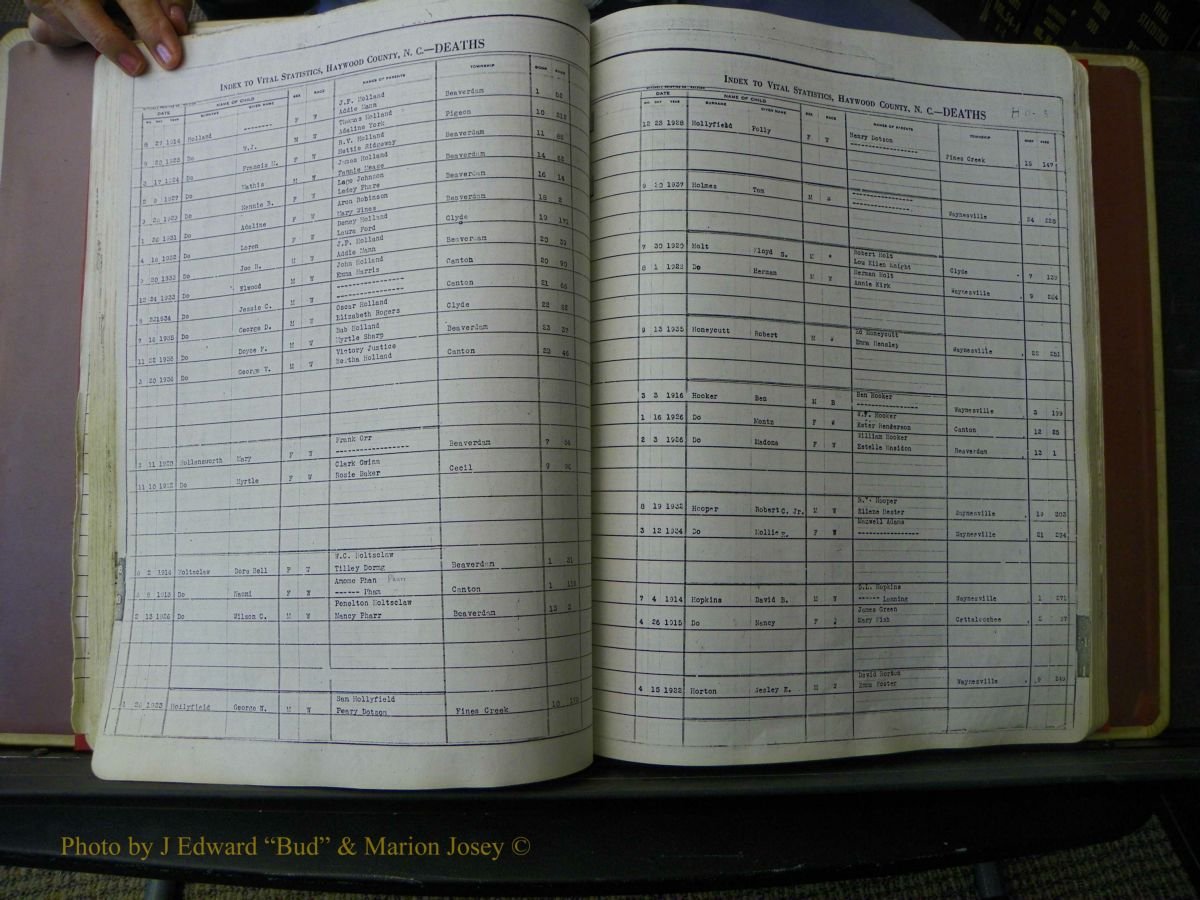 INDEX TO VITAL STATISTICS, HAYWOOD COUNTY, N. C.—DEATHS
DATE NAME OF CHILD SEX RACE NAMES OF PARENTS TOWNSHIP BOOK PAGE
MO. DAY YEAR SURNAME GIVEN NAME
J.F. Holland
8 27 1914 Holland -------- F W Addie Mann Beaverdam 1
Thomas Holland
Do W.J. M W Adaline York Pigeon 10
R.V. Holland
3 17 1924 Do Francis M. F W Hettie Ridgeway Beaverdam 11
James Holland
Do Mathis M W Fannie Mease Beaverdam 14
Lage Johnson
Do Nannie B. F W Beaverdam 16 14
Aron Robinson
1 1931 Do Adaline F W Mary Wines Beaverdam 18 2
Denny Holland
4 1932 Do Loren F W Laura Ford Clyde 19
J.F. Holland
Do Joe B. M W Addie Mann Beaverdam 20
John Holland
12 24 1933 Do Elwood M W Emma Harris Canton 20 90
Do Jessie C. M W -------------- Canton 21
--------------
Oscar Holland
7 1935 Do George D. M W Elizabeth Rogers Clyde 22
Bob Holland
11 22 1936 Do Doyce F. M W Myrtle Sharp Beaverdam 23 37
Victory Justice
3 20 1936 Do George V. M W Bertha Holland Canton 23 46
Frank Orr
11 1920 Hollensworth Mary F W --------------- Beaverdam 7
Clark Gwinn
11 10 1922 Do Myrtle F W Rosie Baker Cecil 9
W.C. Holtsclaw
2 1914 Holtsclaw Dora Bell F W Tilley Dormg Beaverdam 1 31
Amome Phan Pharr
Do Naomi F W ------ Phan Canton 1
Penelton Holtsclaw
2 13 1926 Do Wilson C. M W Nancy Pharr Beaverdam 13 2
Sam Hollyfield
1 1923 Hollyfield George N. M W Peary Dotson Fines Creek 10
INDEX TO VITAL STATISTICS, HAYWOOD COUNTY, N. C.—DEATHS
DATE NAME OF CHILD SEX RACE NAMES OF PARENTS TOWNSHIP BOOK PAGE
MO. DAY YEAR SURNAME GIVEN NAME
Henry Dotson
12 23 1928 Hollyfield Polly F W --------------- Fines Creek 15 147
--------------
9 10 1937 Holmes Tom M -------------- Waynesville 24 225
Robert Holt
7 30 1920 Holt Floyd S. M Lou Ellen Knight Clyde 7 139
Herman Holt
8 1 1922 Do Herman M W Annie Kirk Waynesville 9 224
Ed Honeycutt
9 13 1935 Honeycutt Robert M Emma Hensley Waynesville 22 251
Ben Hooker
3 3 1916 Hooker Ben M B -------------- Waynesville 3 199
W.F. Hooker
1 16 1926 Do Montz F Ester Henderson Canton 12 25
William Hooker
2 3 1926 Do Madona F W Estella Rasidon Beaverdam 13 1
R.V. Hooper
8 19 1932 Hooper Robert C. Jr. M W Ellene Hester Waynesville 19 203
Maxwell Adams
3 12 1934 Do Mollie F W --------------- Waynesville 21 294
D.L. Hopkins
7 4 1914 Hopkins David B. M W ------ Lanning Waynesville 1 271
James Green
4 26 1915 Do Nancy F Mary Fish Cattaloochee 2
David Horton
4 15 1922 Horton Wesley E. M Emma Foster Waynesville 9 249
Photo by J Edward “Bud” & Marion Josey ©